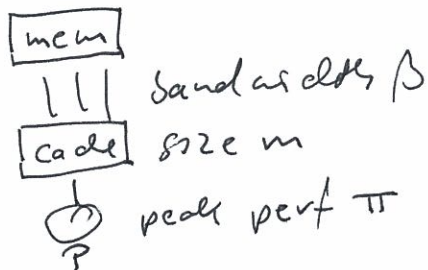 mem
bandwidth β
cache size m
peak perf π
P